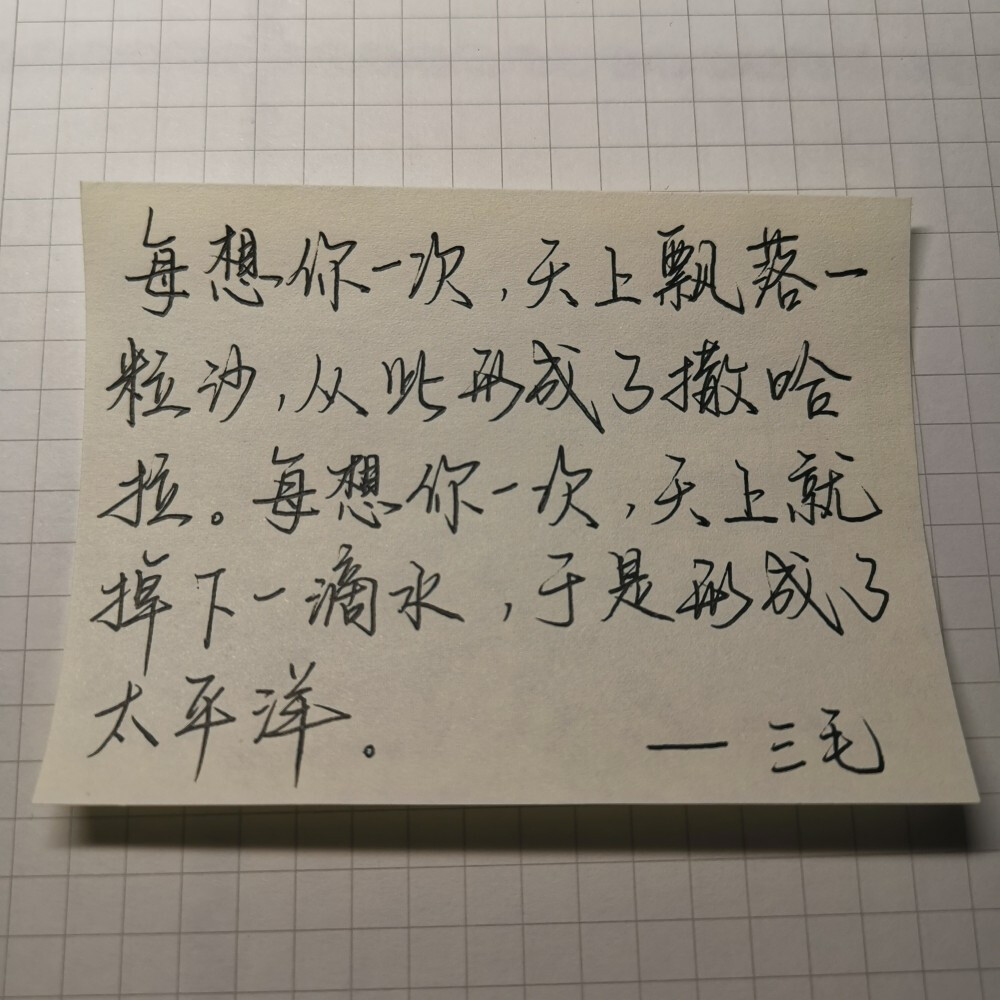 每想你一次,天上飘落一
粒沙,从此形成了撒哈
拉。每想你一次,天上就
掉下一滴水,于是形成了
太平洋。
——三毛